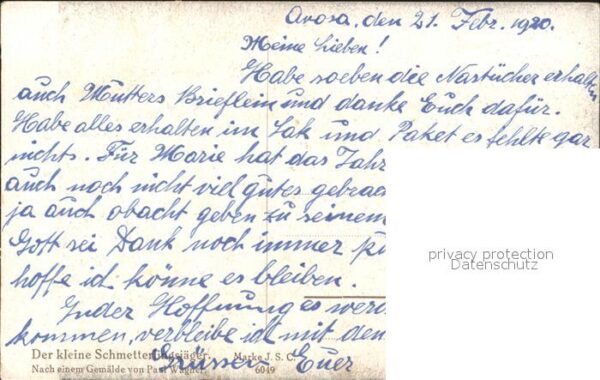 Arosa, den 21. Febr. 1920.
Meine Lieben!
Habe soeben die Nastücher erhalten
auch Mutters Brieflein und danke Euch dafür.
Habe alles erhalten im Sak und Paket es fehlte gar
nichts. Für Marie hat das Jahr
auch noch nicht viel gutes gebrac
privacy protection
ja auch obacht geben zu seinem
Datenschutz
Gott sei Dank noch immer
hoffe ich könne es bleiben.
In der Hoffnung es werd
kommen, verbleibe ich mit den
Der kleine Schmetterlingsjäger. Marke J. S. C.
Grüssen Euer
Nach einem Gemälde von Paul Wagner. 6049